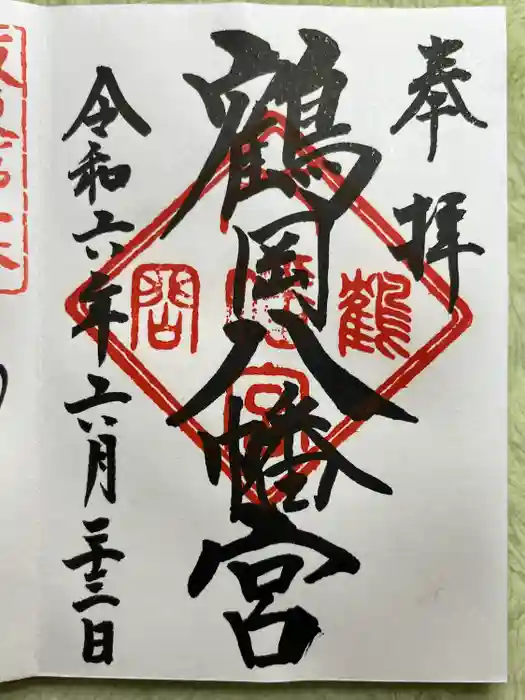 奉拝
鶴岡八幡宮
令和六年六月二十三日
鶴
岡
宮